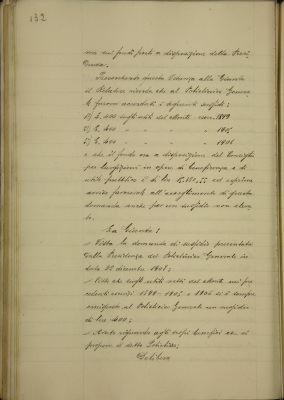 132
sui fondi posti a disposizione della Presi
denza.
Trasmettendo questa istanza alla Giunta
il Relatore ricorda che al Policlinico Genera
le furono accordati i seguenti sussidi:
L. 400 sugli utili del Monte 1899
L. 400 " " " 1905
L. 400 " " " 1906
e che il fondo ora a disposizione del Consiglio
per erogazioni in opere di beneficenza e di
utilità pubblica è di Lire
avviso favorevole all'accoglimento di questa
domanda anche per un sussidio non eleva
to.
La Giunta:
Vista la domanda di sussidio presentata
dalla Presidenza del Policlinico Generale in
data dicembre 1907;
Visto che sugli utili netti del Monte nei pre
cedenti esercizi 1899 - 1905 e 1906 si è sempre
assegnato al Policlinico Generale un sussidio
di lire 400;
Avuto riguardo agli scopi benefici che si
propone il detto Istituto;
Delibera